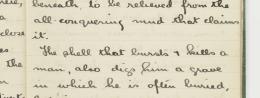 beneath, to be relieved from the
all-conquering mud that claims
it.
The shell that bursts & kills a
man, also digs him a grave
in which he is often buried,